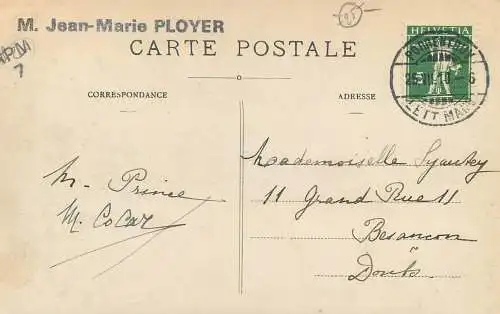 M. Jean-Marie PLOYER
95-
CARTE POSTALE
7
CORRESPONDANCE
ADRESSE
HELVETIA
25.III.10 - 6
LETTMAG.
M. Prince
M. Cocar
Mademoiselle Lyautey
11 Grand Rue 11
Besançon
Doubs